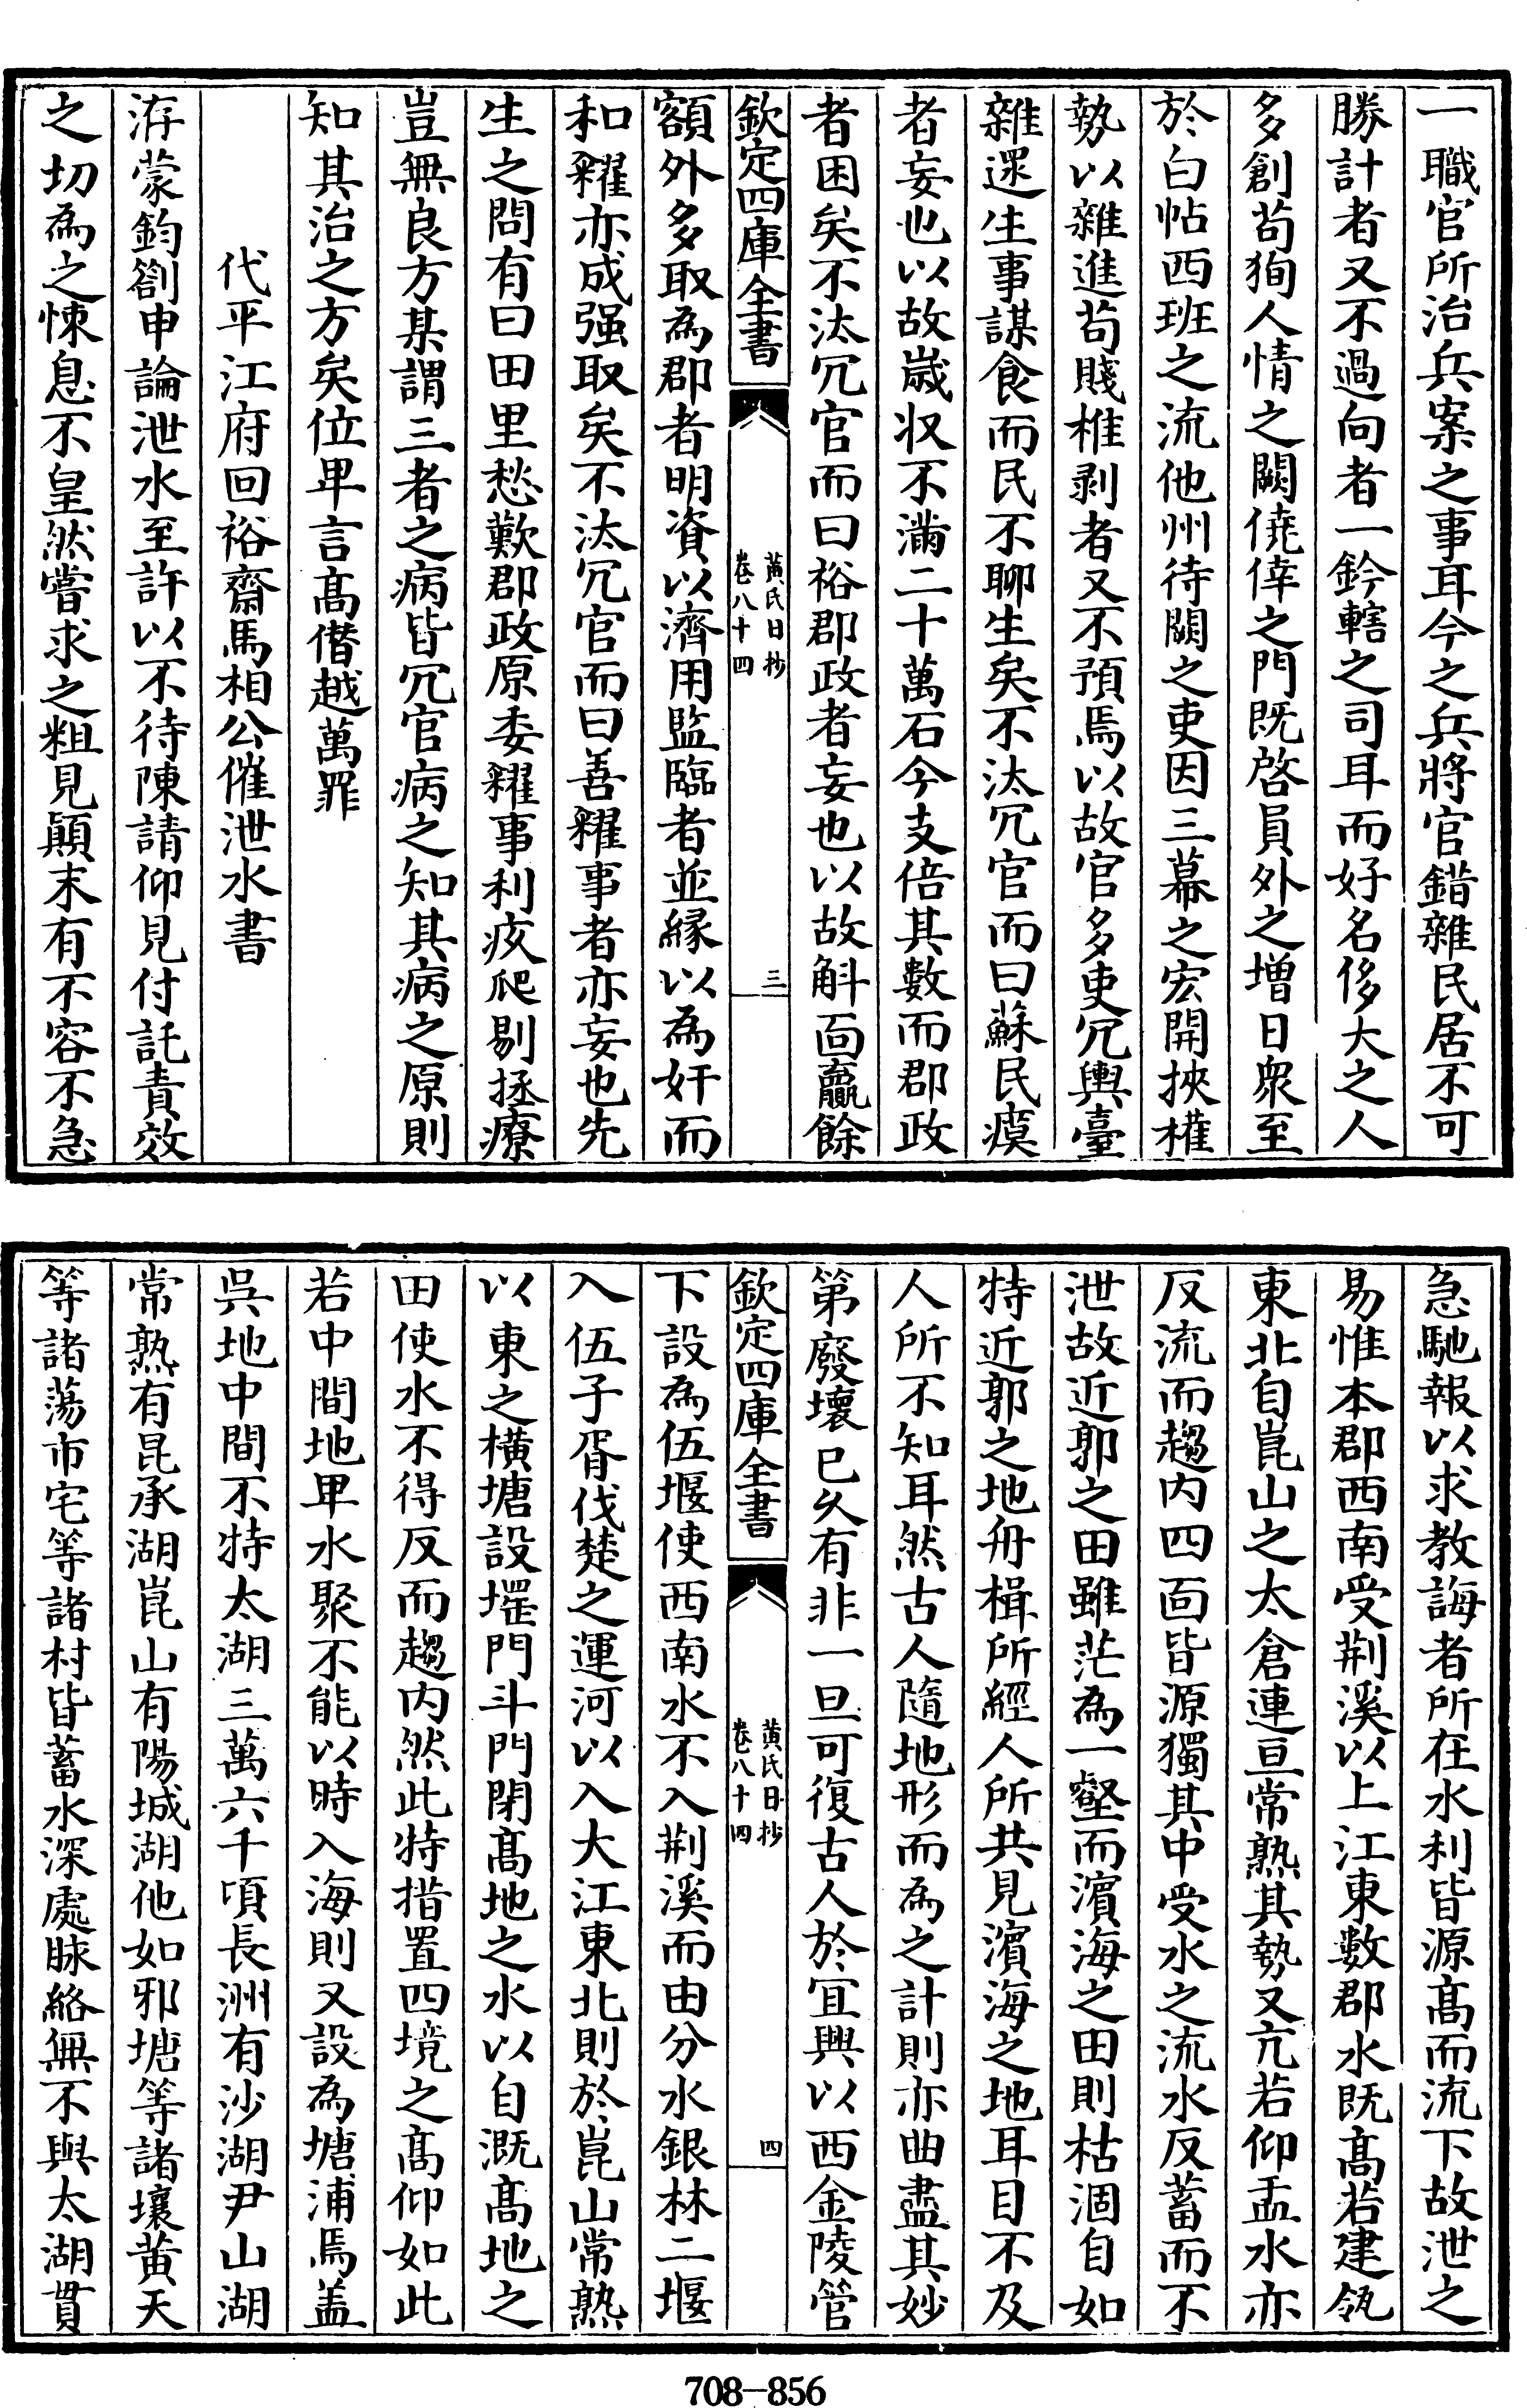 一職官所治兵案之事耳今之兵將官錯雜民居不可
勝計者又不過向者一鈐轄之司耳而好名侈大之人
多創苟狥人情之闕僥倖之門既啓員外之增日衆至
於白帖西班之流他州待闕之吏因三幕之宏開挾權
勢以雜進苟賤椎剥者又不預焉以故官多吏冗輿臺
雜遝生事謀食而民不聊生矣不汰冗官而曰蘇民瘼
者妄也以故嵗收不滿二十萬石今支倍其數而郡政
者困矣不汰冗官而曰裕郡政者妄也以故斛靣贏餘
欽定四庫全書
黄氏日抄
卷八十四
三
額外多取為郡者明資以濟用監臨者並緣以為奸而
和糴亦成强取矣不汰冗官而曰善糴事者亦妄也先
生之問有曰田里愁歎郡政原委糴事利疚爬剔拯療
豈無良方某謂三者之病皆冗官病之知其病之原則
知其治之方矣位卑言髙僣越萬罪
代平江府回裕齋馬相公催泄水書
洊蒙鈞劄申論泄水至許以不待陳請仰見付託責效
之切為之悚息不皇然嘗求之粗見顛末有不容不急
急馳報以求教誨者所在水利皆源髙而流下故泄之
易惟本郡西南受荆溪以上江東數郡水既髙若建瓴
東北自崑山之太倉連亘常熟其勢又亢若仰盂水亦
反流而趨内四靣皆源獨其中受水之流水反蓄而不
泄故近郭之田雖茫為一壑而濵海之田則枯涸自如
特近郭之地舟楫所經人所共見濵海之地耳目不及
人所不知耳然古人隨地形而為之計則亦曲盡其妙
第廢壊已久有非一旦可復古人於宜興以西金陵管
欽定四庫全書
黄氏日抄
卷八十四
四
下設為伍堰使西南水不入荆溪而由分水銀林二堰
入伍子胥伐楚之運河以入大江東北則於崑山常熟
以東之橫塘設𡏖門斗門閉髙地之水以自溉髙地之
田使水不得反而趨内然此特措置四境之髙仰如此
若中間地卑水聚不能以時入海則又設為塘浦焉盖
吳地中間不特太湖三萬六千頃長洲有沙湖尹山湖
常熟有昆承湖崑山有陽城湖他如邪塘等諸壤黄天
等諸蕩市宅等諸村皆蓄水深處脉絡無不與太湖貫
708—856